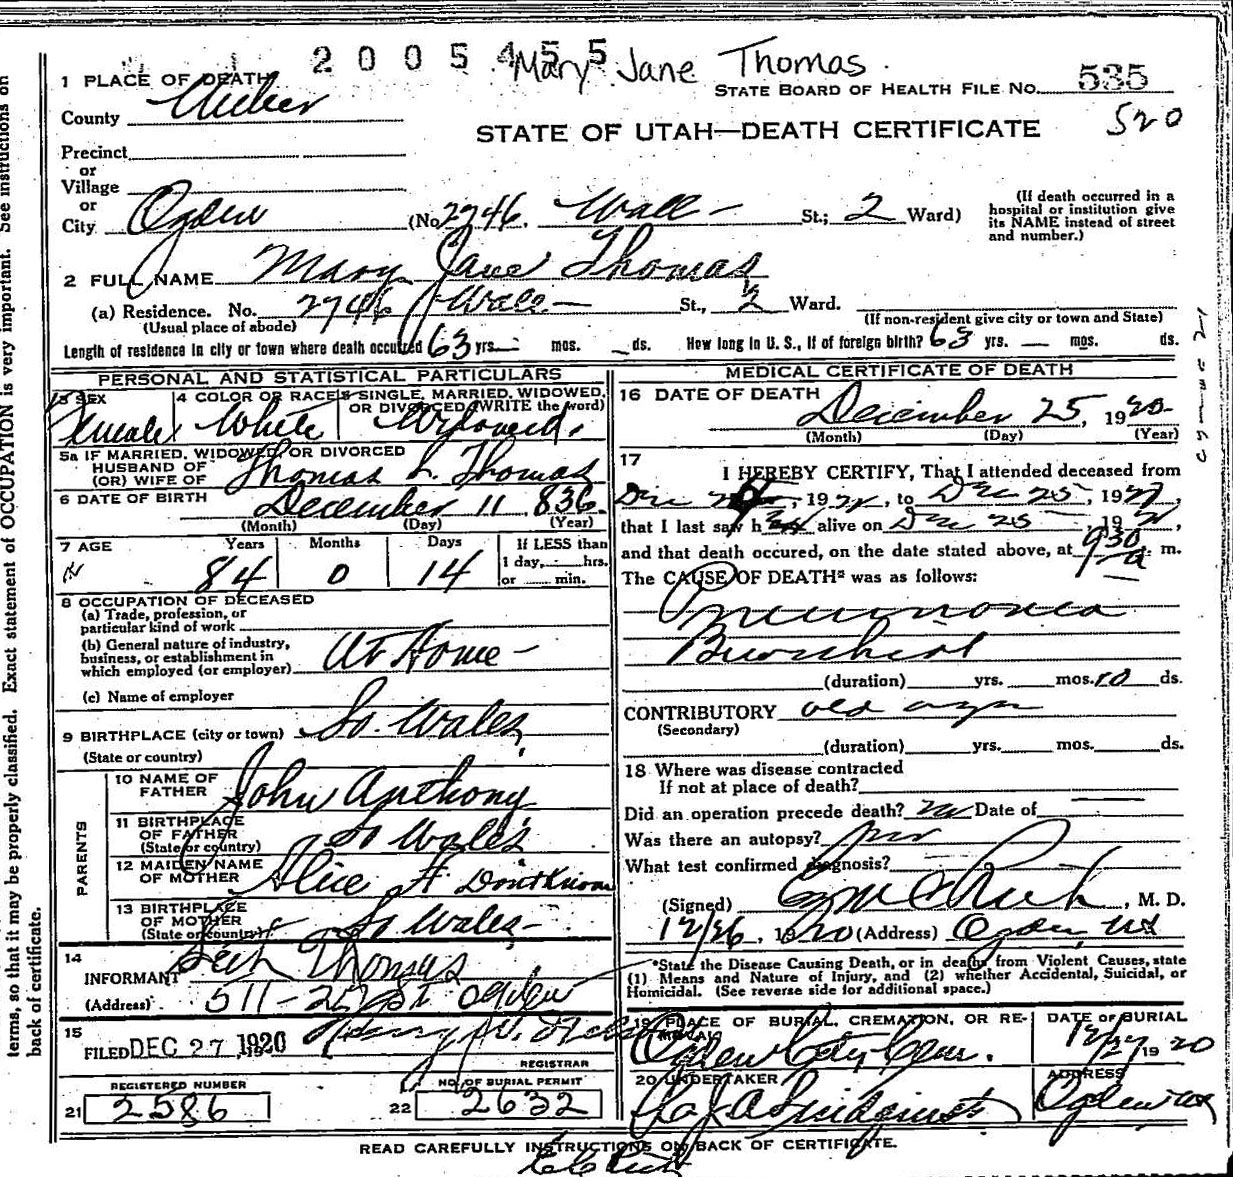 2005455
Mary Jane Thomas.
1 PLACE OF DEATH
STATE BOARD OF HEALTH FILE NO. 535
County Weber
520
STATE OF UTAH—DEATH CERTIFICATE
Precinct
or
Village
or
City Ogden (No 2746. Wall - St.; 2 Ward)
(If death occurred in a
hospital or institution give
its NAME instead of street
and number.)
2 FULL NAME Mary Jane Thomas
(a) Residence. No. 2746 Wall - St., 2 Ward.
(Usual place of abode)
(If non-resident give city or town and State)
Length of residence in city or town where death occurred 63 yrs. mos. ds. How long in U. S., if of foreign birth? 63 yrs. — mos. ds.
PERSONAL AND STATISTICAL PARTICULARS
3 SEX
Female
4 COLOR OR RACE
White
5 SINGLE, MARRIED, WIDOWED,
OR DIVORCED (WRITE the word)
Widowed.
5a IF MARRIED, WIDOWED, OR DIVORCED
HUSBAND OF
(OR) WIFE OF Thomas L. Thomas
6 DATE OF BIRTH December 11, 836
(Month) (Day) (Year)
7 AGE Years Months Days If LESS than
1 day, hrs.
or min.
84 0 14
8 OCCUPATION OF DECEASED
(a) Trade, profession, or
particular kind of work
(b) General nature of industry,
business, or establishment in
which employed (or employer) At Home -
(c) Name of employer
9 BIRTHPLACE (city or town) So. Wales
(State or country)
PARENTS
10 NAME OF
FATHER John Anthony
11 BIRTHPLACE
OF FATHER
(State or country) So Wales
12 MAIDEN NAME
OF MOTHER Alice H Dont Know
13 BIRTHPLACE
OF MOTHER
(State or country) So Wales -
14
INFORMANT Thomas
(Address) 511 - Ogden
15
FILED DEC 27, 1920
REGISTRAR
REGISTERED NUMBER
21 2586
NO. OF BURIAL PERMIT
22 2632
MEDICAL CERTIFICATE OF DEATH
16 DATE OF DEATH
December 25, 1920
(Month) (Day) (Year)
17
I HEREBY CERTIFY, That I attended deceased from
Dec , 19 , to Dec 25, 19 ,
that I last saw h alive on Dec 25, 19 ,
and that death occured, on the date stated above, at 930 a. m.
The CAUSE OF DEATH* was as follows:
Pneumonia
Bronchial
(duration) yrs. mos. 10 ds.
CONTRIBUTORY old age
(Secondary)
(duration) yrs. mos. ds.
18 Where was disease contracted
If not at place of death?
Did an operation precede death? no Date of
Was there an autopsy? no
What test confirmed diagnosis?
(Signed) Rich, M. D.
12/26, 1920 (Address) Ogden, Ut
*State the Disease Causing Death, or in deaths from Violent Causes, state
(1) Means and Nature of Injury, and (2) whether Accidental, Suicidal, or
Homicidal. (See reverse side for additional space.)
19 PLACE OF BURIAL, CREMATION, OR RE-
MOVAL
Ogden City Cem.
DATE OF BURIAL
12/27 1920
20 UNDERTAKER
ADDRESS
Ogden
READ CAREFULLY INSTRUCTIONS ON BACK OF CERTIFICATE.
terms, so that it may be properly classified. Exact statement of OCCUPATION is very important. See instructions on
back of certificate.